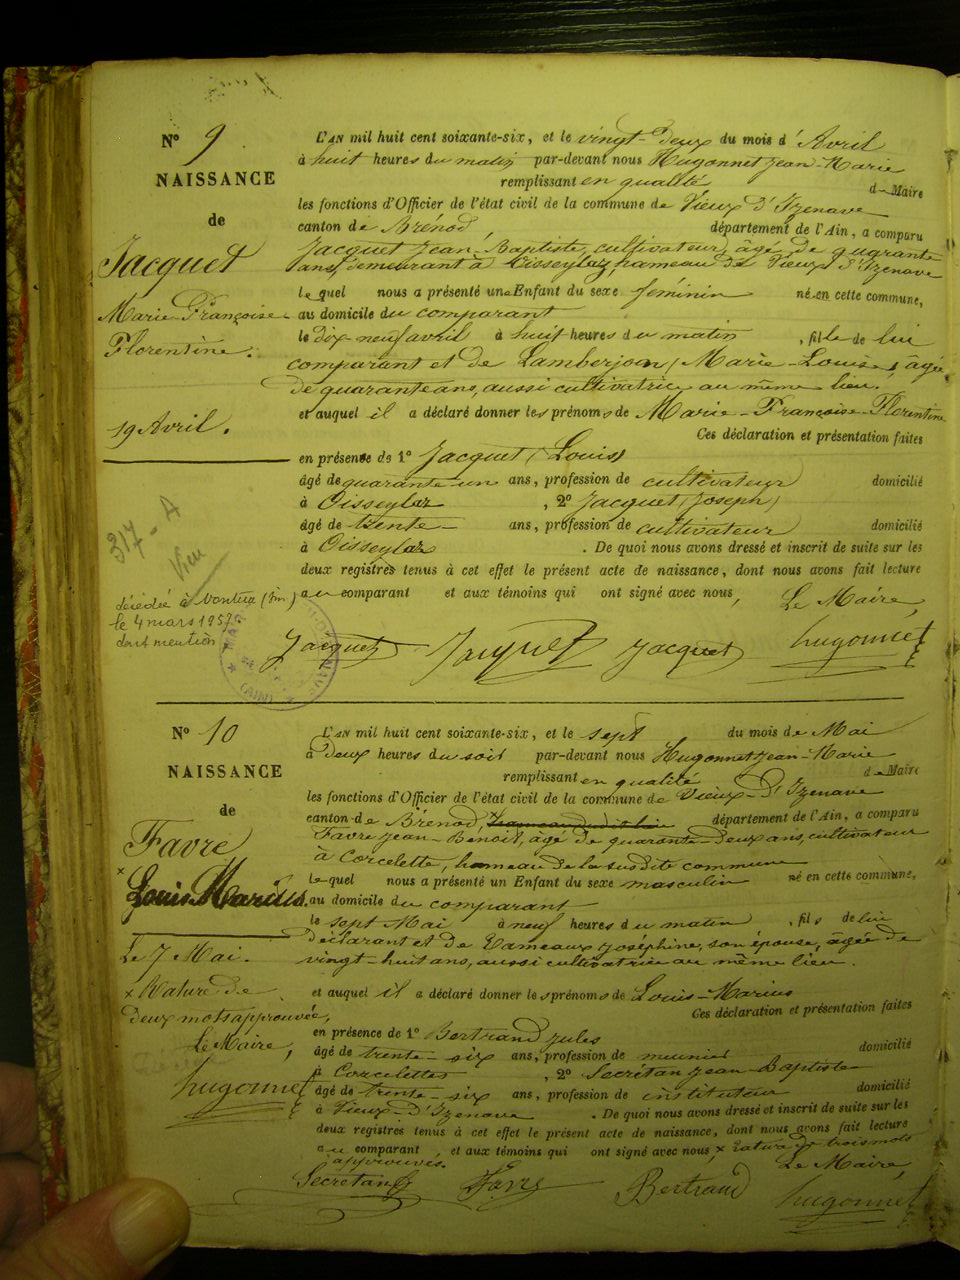 N° 9
NAISSANCE
de
Jacquet
Marie-Françoise
Florentine.
19 Avril.
317 - A
Vieu
décédée à Nantua (Ain)
le 4 mars 1957
dont mention
L'AN mil huit cent soixante-six, et le vingt-deux du mois d'Avril
à huit heures du matin, par-devant nous Hugonnet Jean-Marie
remplissant en qualité de Maire
les fonctions d'Officier de l'état civil de la commune de Vieux d'Izenave
canton de Brénod, département de l'Ain, a comparu
Jacquet Jean-Baptiste, cultivateur, âgé de quarante
ans, demeurant à Oisseylaz, hameau de Vieux d'Izenave
lequel nous a présenté une Enfant du sexe féminin né en cette commune,
au domicile du comparant
le dix-neuf avril à huit heures du matin, fille de lui
comparant et de Lamberjon (Marie-Louise), âgée
de quarante ans, aussi cultivatrice au même lieu.
et auquel il a déclaré donner les prénoms de Marie-Françoise-Florentine
Ces déclaration et présentation faites
en présence de 1° Jacquet (Louis)
âgé de quarante-un ans, profession de cultivateur domicilié
à Oisseylaz, 2° Jacquet (Joseph)
âgé de trente ans, profession de cultivateur domicilié
à Oisseylaz. De quoi nous avons dressé et inscrit de suite sur les
deux registres tenus à cet effet le présent acte de naissance, dont nous avons fait lecture
au comparant et aux témoins qui ont signé avec nous, Le Maire,
Jacquet Jacquet Jacquet hugonnet
N° 10
NAISSANCE
de
Favre
× Louis Marius.
Le 7 Mai.
× Rature de
deux mots approuvée,
Le Maire,
hugonnet
L'AN mil huit cent soixante-six, et le sept du mois de Mai
à deux heures du soir par-devant nous Hugonnet Jean-Marie
remplissant en qualité de Maire
les fonctions d'Officier de l'état civil de la commune de Vieux-d'Izenave
canton de Brénod, département de l'Ain, a comparu
Favre Jean-Benoit, âgé de quarante-deux ans, cultivateur
à Corcelette, hameau de la susdite commune
lequel nous a présenté un Enfant du sexe masculin né en cette commune,
au domicile du comparant
le sept Mai à neuf heures du matin, fils de lui
déclarant et de Rameaux Joséphine, son épouse, âgée de
vingt-huit ans, aussi cultivatrice au même lieu.
et auquel il a déclaré donner les prénoms de Louis-Marius
Ces déclaration et présentation faites
en présence de 1° Bertrand Jules
âgé de trente-six ans, profession de meunier domicilié
à Corcelettes, 2° Secrétan Jean-Baptiste
âgé de trente-six ans, profession de instituteur domicilié
à Vieux-d'Izenave. De quoi nous avons dressé et inscrit de suite sur les
deux registres tenus à cet effet le présent acte de naissance, dont nous avons fait lecture
au comparant, et aux témoins qui ont signé avec nous, × Rature de trois mots
approuvés. Le Maire,
Secrétan Favre Bertrand hugonnet